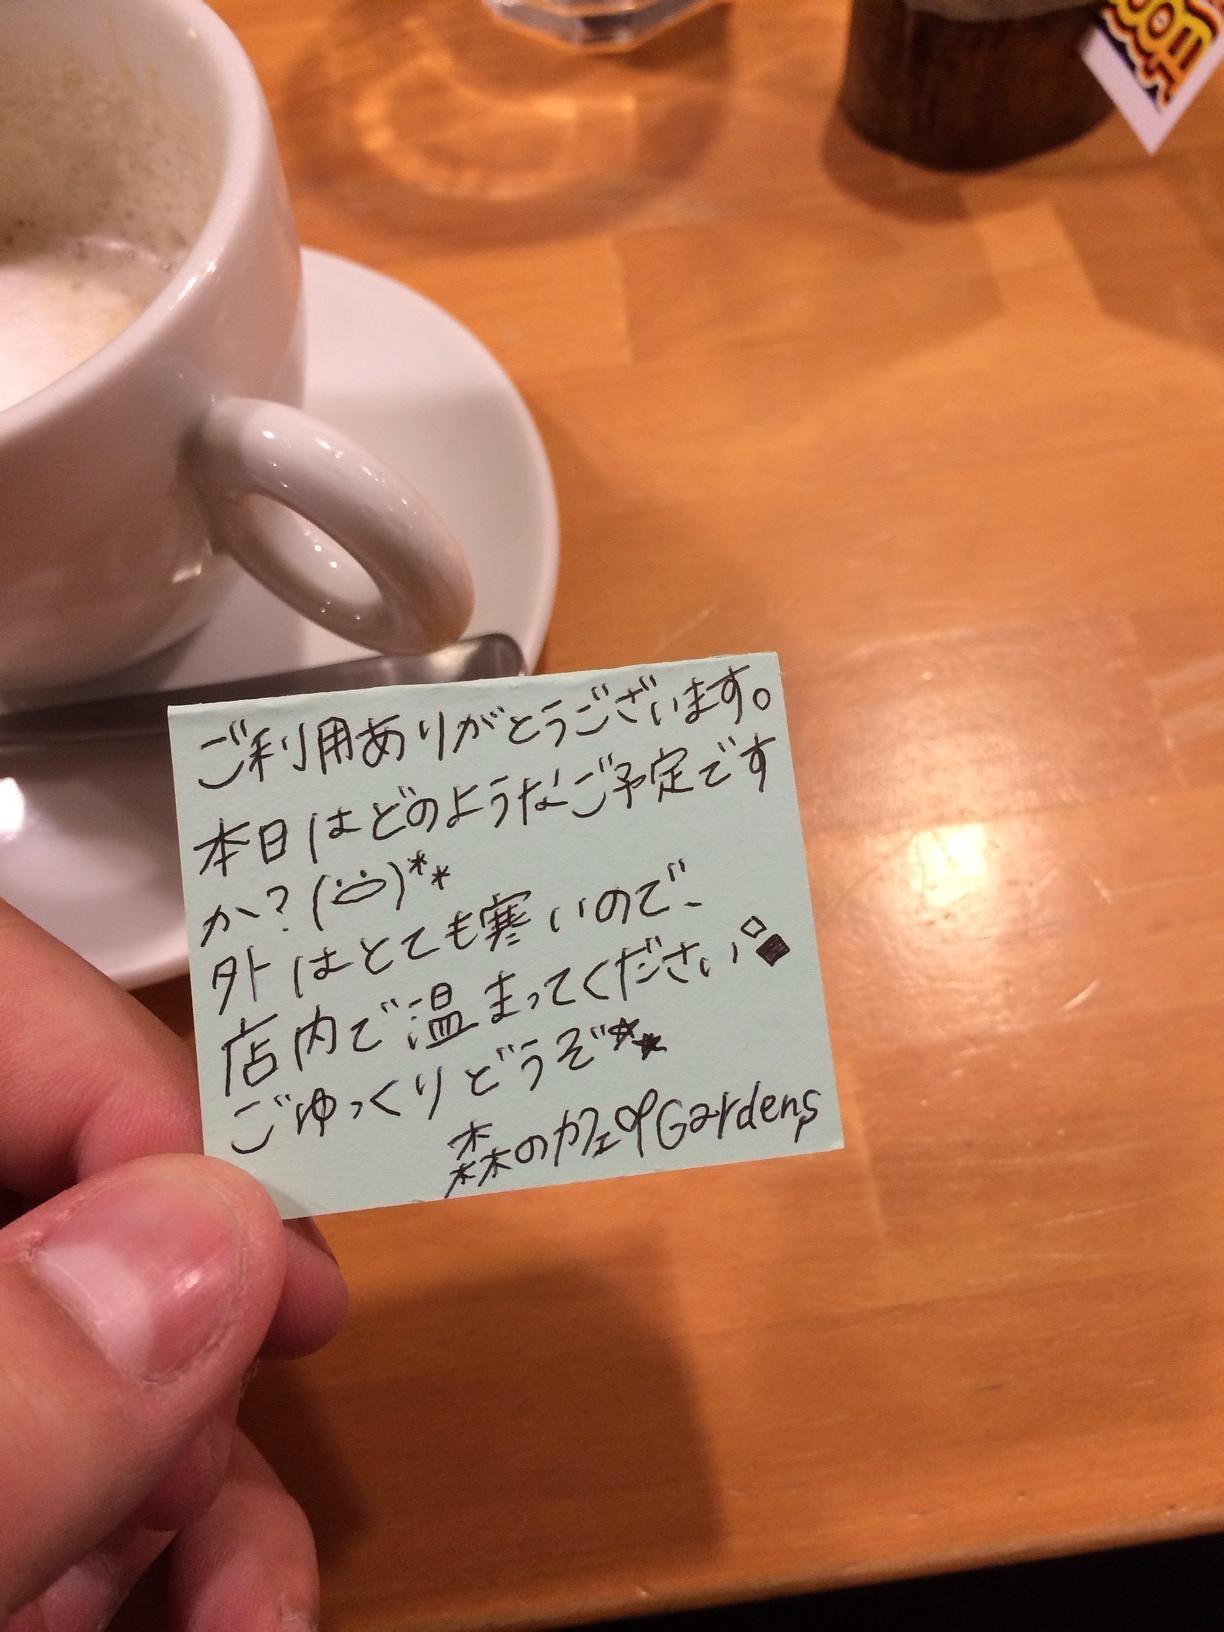 ご利用ありがとうございます。
本日はどのようなご予定です
か?
外はとても寒いので、
店内で温まってください
ごゆっくりどうぞ
森のカフェ Gardens